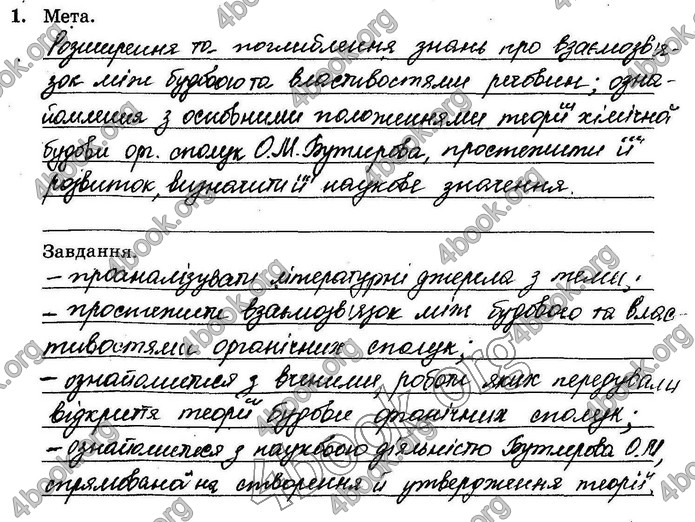 1. Мета.
Розширення та поглиблення знань про взаємозв'я-
зок між будовою та властивостями речовин; озна-
йомлення з основними положеннями теорії хімічної
будови орг. сполук О.М.Бутлерова, простежити її
розвиток, визначити її наукове значення.
Завдання.
– проаналізувати літературні джерела з теми;
– простежити взаємозв'язок між будовою та влас-
тивостями органічних сполук;
– ознайомитися з вченими, роботи яких передували
відкриття теорії будови органічних сполук;
– ознайомитися з науковою діяльністю Бутлерова О.М,
спрямованої на створення й утвердження теорії.
4book.org